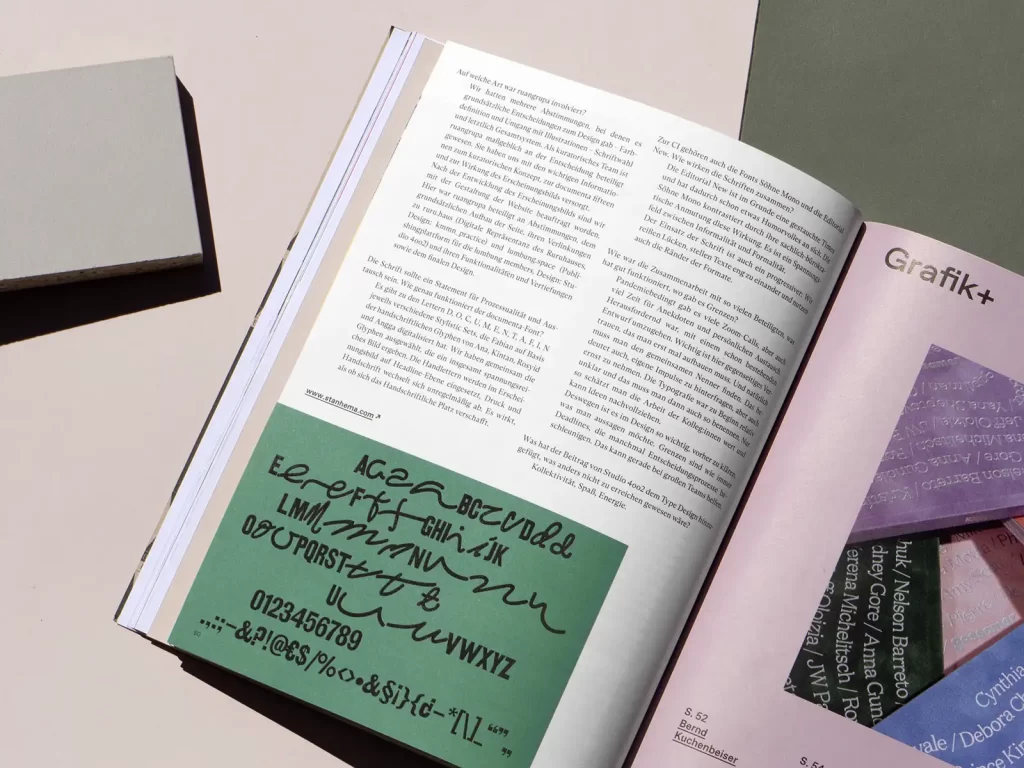 Auf welche Art war ruangrupa involviert?
Wir hatten mehrere Abstimmungen, bei denen es
grundsätzliche Entscheidungen zum Design gab - Farb-
definition und Umgang mit Illustrationen - Schriftwahl
und letzlich Gesamtsystem. Als kuratorisches Team ist
ruangrupa maßgeblich an der Entscheidung beteiligt
gewesen. Sie haben uns mit den wichtigen Informatio-
nen zum kuratorischen Konzept, zur documenta fifteen
und zur Wirkung des Erscheinungsbilds versorgt.
Nach der Entwicklung des Erscheinungsbilds sind wir
mit der Gestaltung der Website beauftragt worden.
Hier war ruangrupa beteiligt an Abstimmungen, dem
grundsätzlichen Aufbau der Seite, ihren Verlinkungen
zu rurchaus (Digitale Repräsentanz des Ruruhauses,
Design: kmmn_practice) und lumbung.space (Publi-
shingplattform für die lumbung members, Design: Stu-
dio 4oo2) und ihren Funktionalitäten und Vertiefungen
sowie dem finalen Design.
Die Schrift sollte ein Statement für Prozessualität und Aus-
tausch sein. Wie genau funktioniert der documenta-Font?
Es gibt zu den Lettern D, O, C, U, M, E, N, T, A, F, I, N
jeweils verschiedene Stylistic Sets, die Fabian auf Basis
der handschriftlichen Glyphen von Ana, Kintan, Rosyid
und Angga digitalisiert hat. Wir haben gemeinsam die
Glyphen ausgewählt, die ein insgesamt spannungsrei-
ches Bild ergeben. Die Handlettern werden im Erschei-
nungsbild auf Headline-Ebene eingesetzt, Druck und
Handschrift wechseln sich unregelmäßig ab. Es wirkt,
als ob sich das Handschriftliche Platz verschafft.
www.stanhema.com ↗
Zur CI gehören auch die Fonts Söhne Mono und die Editorial
New. Wie wirken die Schriften zusammen?
Die Editorial New ist im Grunde eine gestauchte Times
und hat dadurch schon etwas Humorvolles an sich. Die
Söhne Mono kontrastiert durch ihre sachlich-bürokra-
tische Anmutung diese Wirkung. Es ist ein Spannungs-
feld zwischen Informalität und Formalität.
Der Einsatz der Schrift ist auch ein progressiver. Wir
reißen Lücken, stellen Texte eng zu einander und nutzen
auch die Ränder der Formate.
Wie war die Zusammenarbeit mit so vielen Beteiligten, was
hat gut funktioniert, wo gab es Grenzen?
Pandemiebedingt gab es viele Zoom Calls, aber auch
viel Zeit für Anekdoten und persönlichen Austausch.
Herausfordernd war, mit einem schon bestehenden
Entwurf umzugehen. Wichtig ist hier gegenseitiges Ver-
trauen, das man erst mal aufbauen muss. Und natürlich
muss man den gemeinsamen Nenner finden. Das be-
deutet auch, eigene Impulse zu hinterfragen, aber auch
ernst zu nehmen. Die Typografie war zu Beginn relativ
unklar und das muss man dann auch so benennen. Nur
so schätzt man die Arbeit der Kolleg:innen wert und
kann Ideen nachvollziehen.
Deswegen ist es im Design so wichtig, vorher zu klären,
was man aussagen möchte. Grenzen sind wie immer
Deadlines, die manchmal Entscheidungsprozesse be-
schleunigen. Das kann gerade bei großen Teams helfen.
Was hat der Beitrag von Studio 4oo2 dem Type Design hinzu-
gefügt, was anders nicht zu erreichen gewesen wäre?
Kollektivität, Spaß, Energie.
AGaaBCZCVDdd
EeeeFffGHhiiJK
LMMmmmNVnnn
OOUPQRSTtttt
UUuuuVWXYZ
0123456789
",:;–&?!@€$/%<>•&§¡}{¢–*[\]_ “”"
Grafik+
S. 52
Bernd
Kuchenbeiser
S. 54
Nelson Barreto
huk / Nelson Barreto/
dney Gore / Anna Gund
erena Michelitsch / Ro
Cynthia
vale / Debora Ch